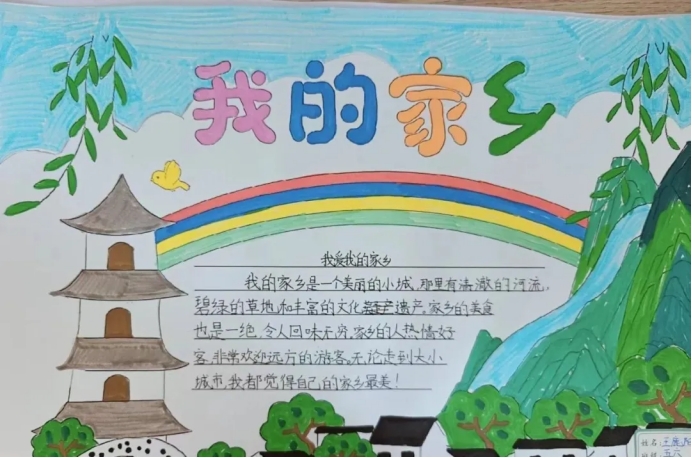 我的家乡
我爱我的家乡
我的家乡是一个美丽的小城,那里有清澈的河流,
碧绿的草地和丰富的文化遗产,家乡的美食
也是一绝,令人回味无穷,家乡的人热情好
客,非常欢迎远方的游客,无论走到大小
城市,我都觉得自己的家乡最美!
姓名:王
五六